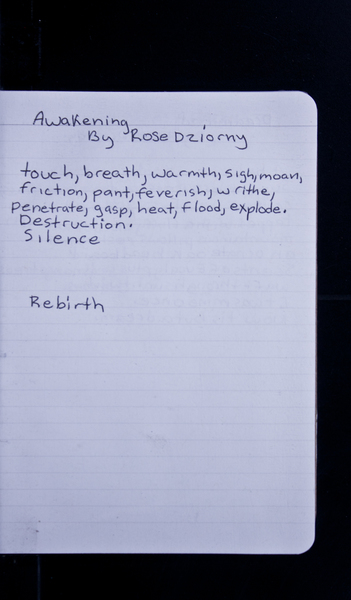 Awakening
By Rose Dziorny
touch, breath, warmth, sigh, moan,
friction, pant, feverish, writhe,
penetrate, gasp, heat, flood, explode.
Destruction.
Silence
Rebirth